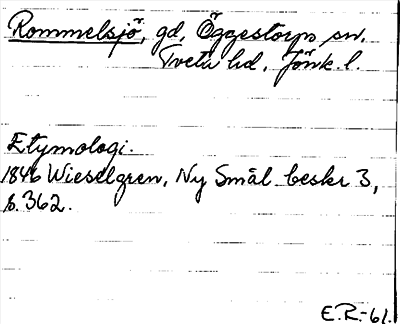 Rommelsjö, gd, Öggestorps sn.
Tveta hd, Jönk. l.
Etymologi.
1846 Wieselgren, Ny Smål. beskr 3,
s. 362.
E.R.-61.